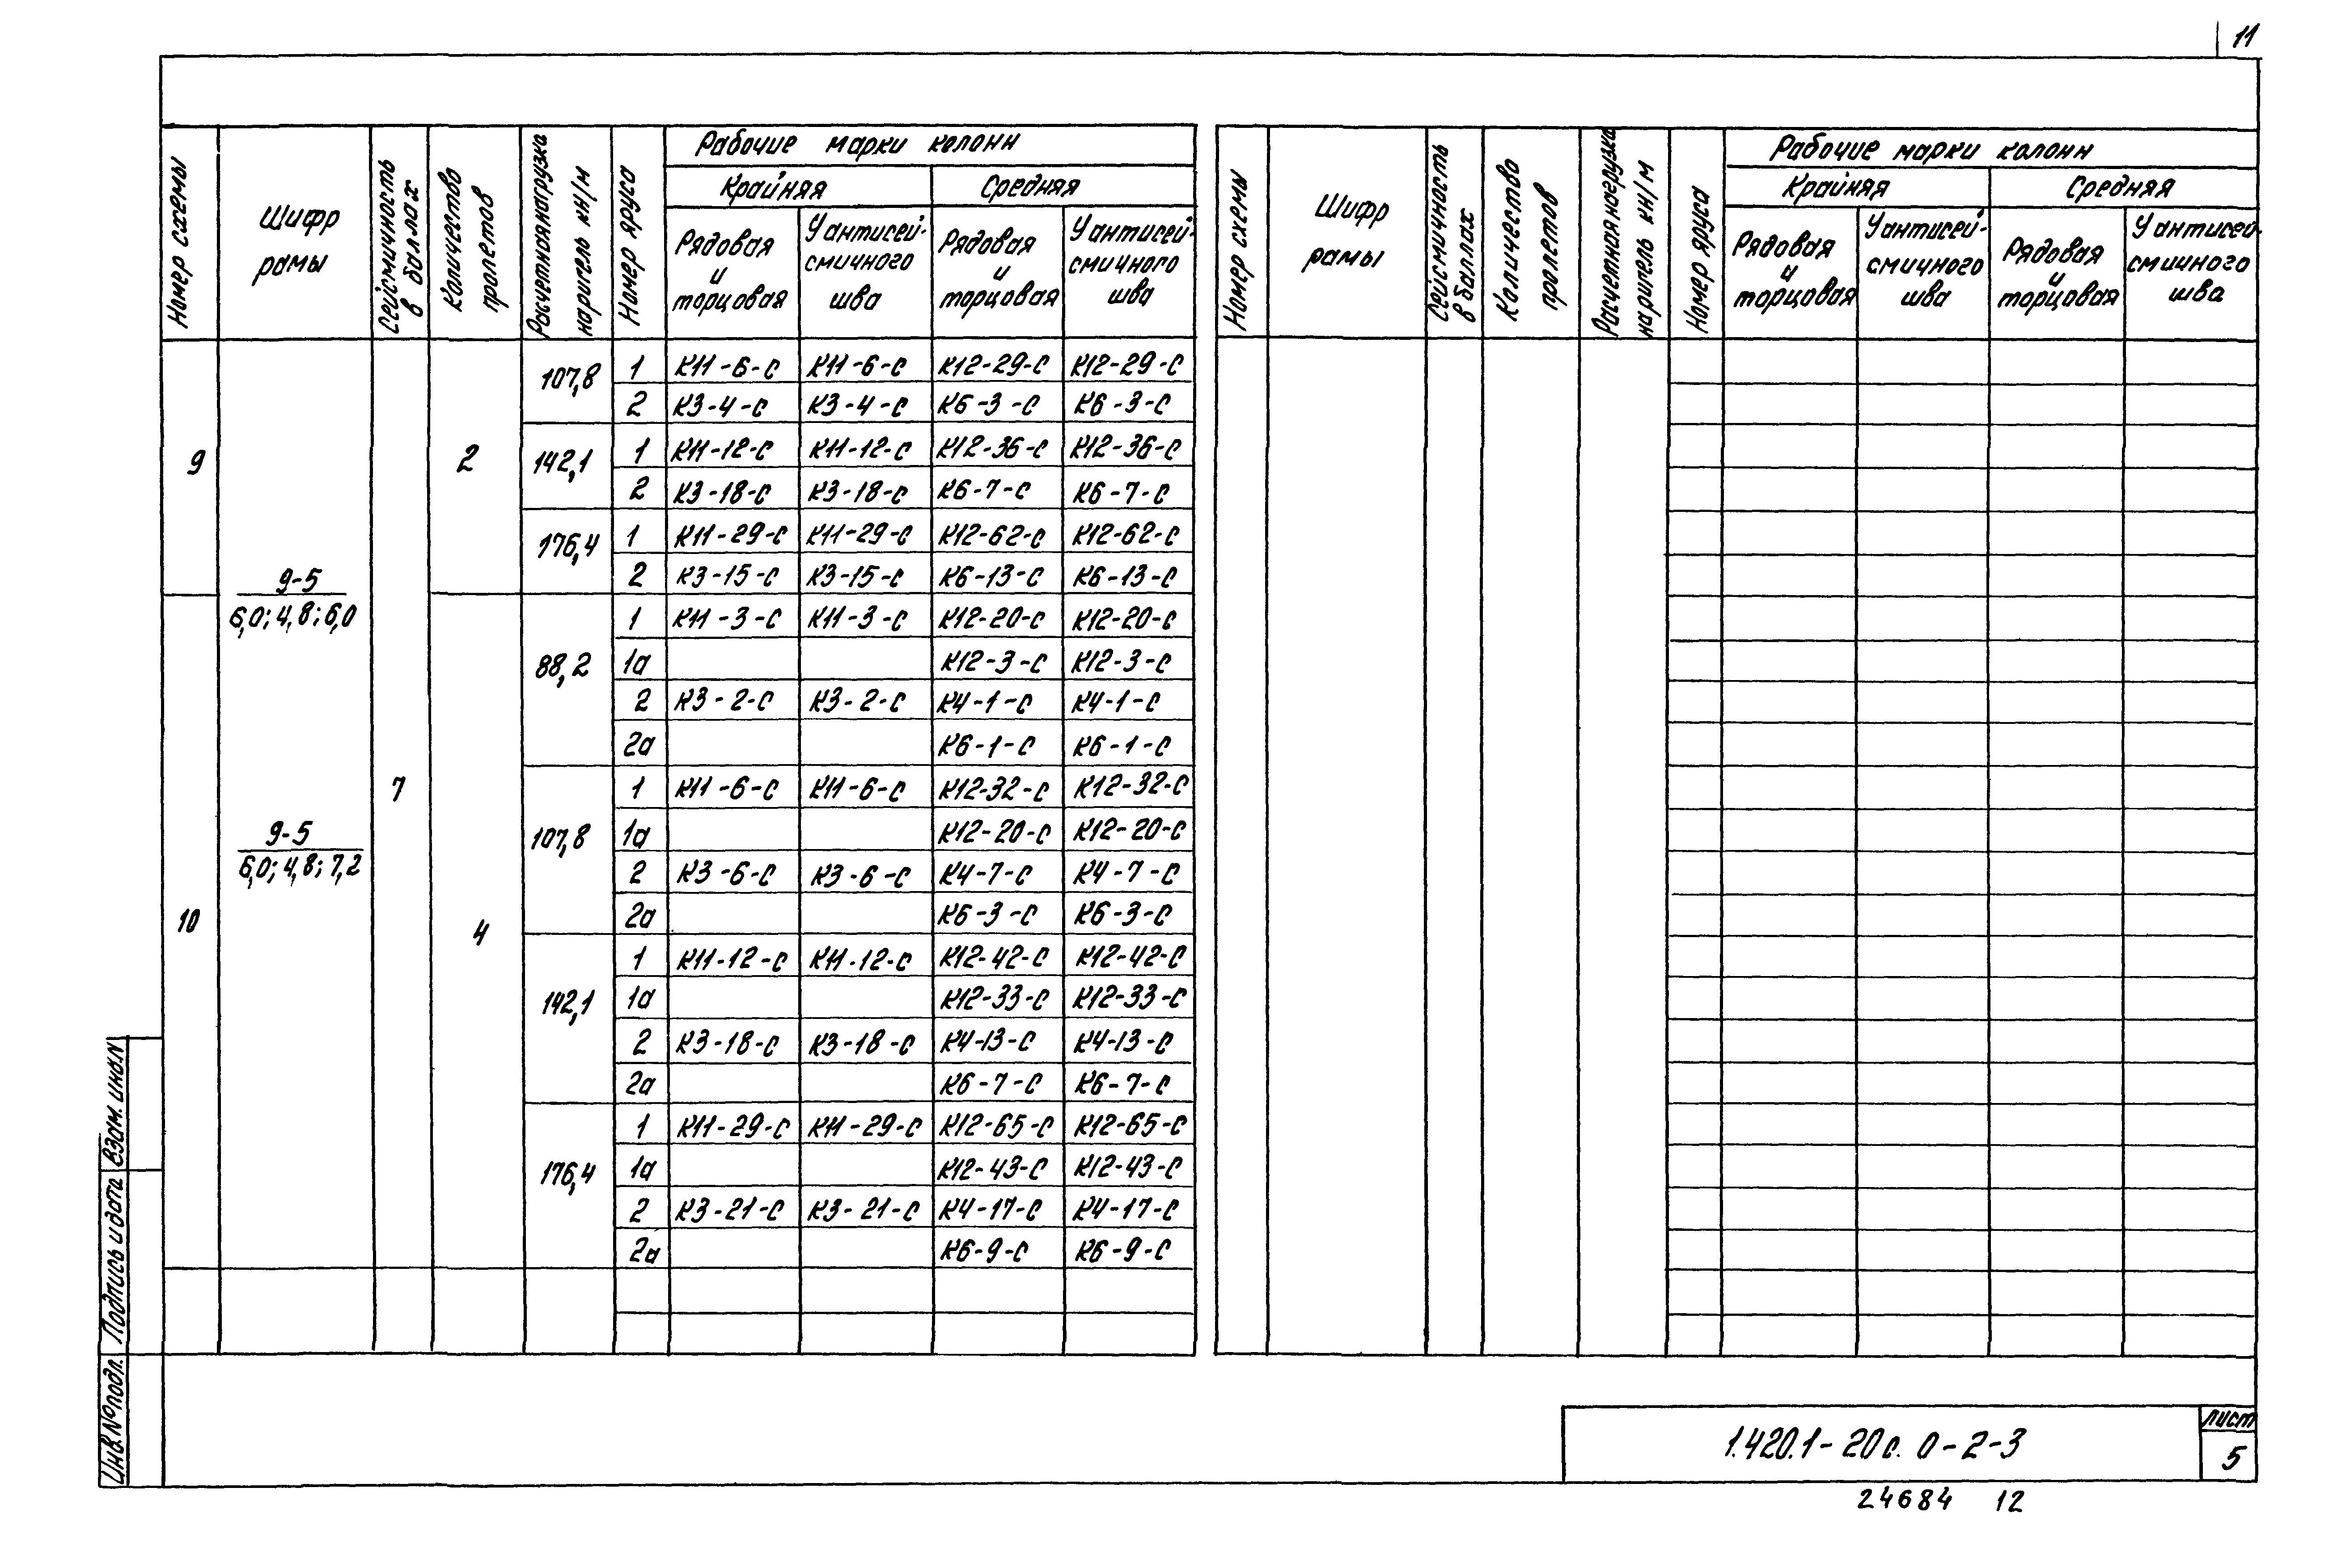 11
Номер схемы
Шифр рамы
Сейсмичность в баллах
Количество пролетов
Расчетная нагрузка на ригель кН/м
Номер яруса
Рабочие марки колонн
Крайняя
Средняя
Рядовая и торцовая
У антисейсмичного шва
Рядовая и торцовая
У антисейсмичного шва
9
10
9-5
6,0; 4,8; 6,0
9-5
6,0; 4,8; 7,2
7
2
4
107,8
1 К11-6-С К11-6-С К12-29-С К12-29-С
2 К3-4-С К3-4-С К6-3-С К6-3-С
142,1
1 К11-12-С К11-12-С К12-36-С К12-36-С
2 К3-18-С К3-18-С К6-7-С К6-7-С
176,4
1 К11-29-С К11-29-С К12-62-С К12-62-С
2 К3-15-С К3-15-С К6-13-С К6-13-С
88,2
1 К11-3-С К11-3-С К12-20-С К12-20-С
1а К12-3-С К12-3-С
2 К3-2-С К3-2-С К4-1-С К4-1-С
2а К6-1-С К6-1-С
107,8
1 К11-6-С К11-6-С К12-32-С К12-32-С
1а К12-20-С К12-20-С
2 К3-6-С К3-6-С К4-7-С К4-7-С
2а К6-3-С К6-3-С
142,1
1 К11-12-С К11-12-С К12-42-С К12-42-С
1а К12-33-С К12-33-С
2 К3-18-С К3-18-С К4-13-С К4-13-С
2а К6-7-С К6-7-С
176,4
1 К11-29-С К11-29-С К12-65-С К12-65-С
1а К12-43-С К12-43-С
2 К3-21-С К3-21-С К4-17-С К4-17-С
2а К6-9-С К6-9-С
Номер схемы
Шифр рамы
Сейсмичность в баллах
Количество пролетов
Расчетная нагрузка на ригель кН/м
Номер яруса
Рабочие марки колонн
Крайняя
Средняя
Рядовая и торцовая
У антисейсмичного шва
Рядовая и торцовая
У антисейсмичного шва
Инв.№ подл.
Подпись и дата
Взам. инв.N
1.420.1-20с. 0-2-3
лист
5
24684 12